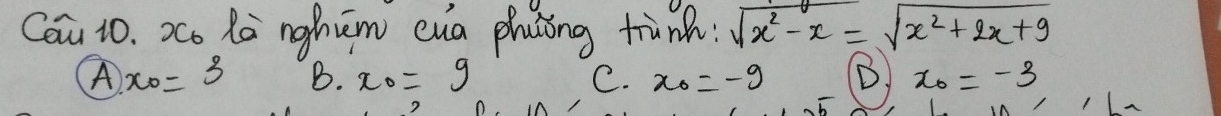 Câu 10. x₀ là nghiệm của phương trình: √(x² - x) = √(x² + 2x + 9)
A. x₀ = 3 B. x₀ = 9 C. x₀ = -9 D. x₀ = -3